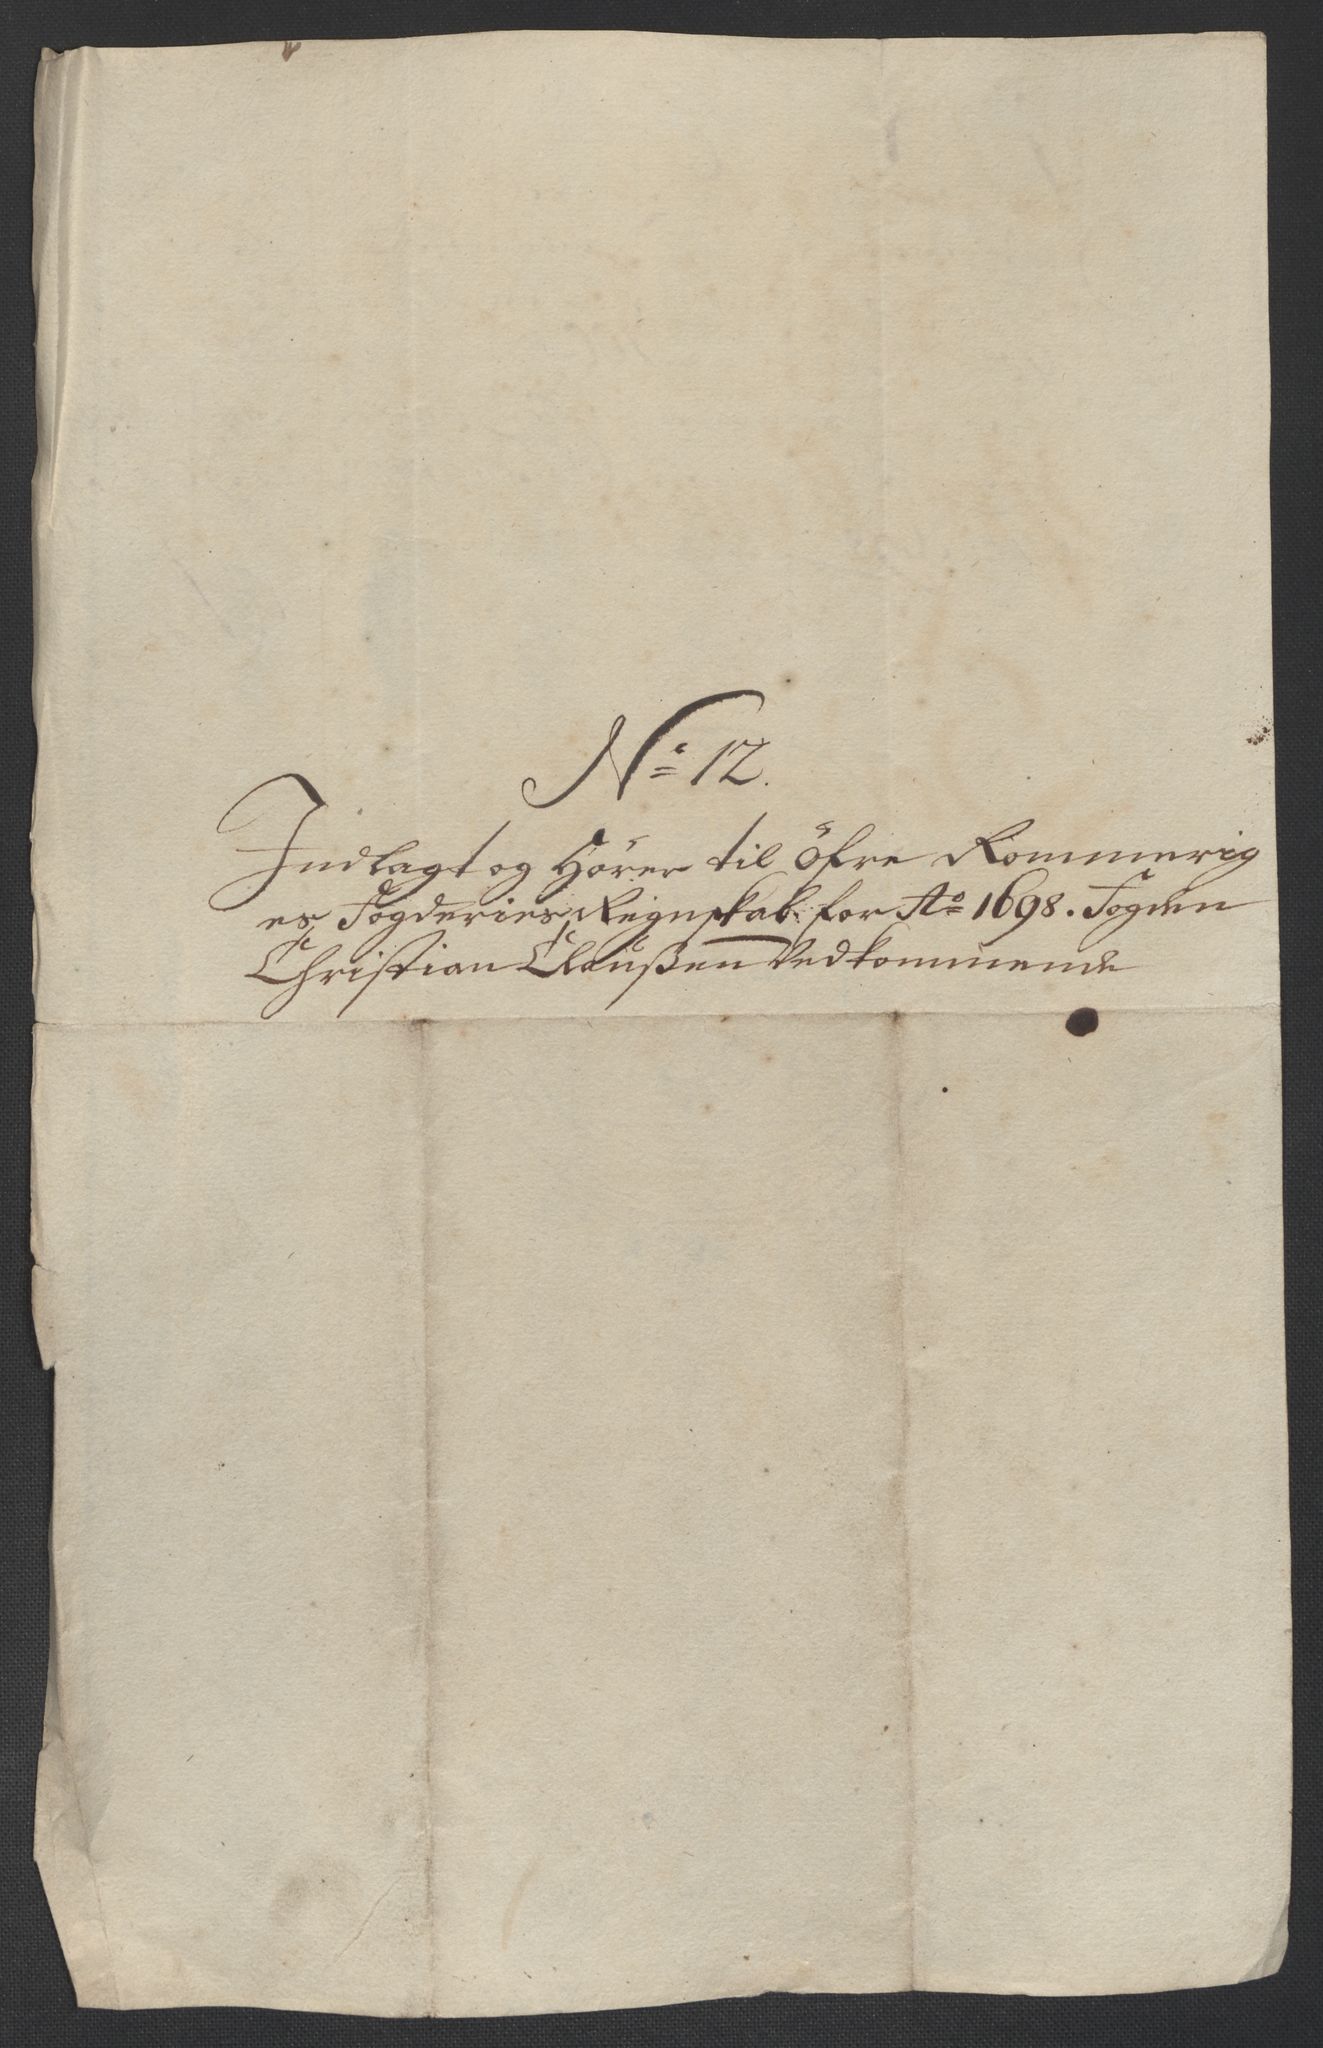 No 12.
Indlagt og Hörer til Öfre Rommerig
es Fogderies Reignskab for Ao 1698. Fogden
Christian Claußen Vedkommende